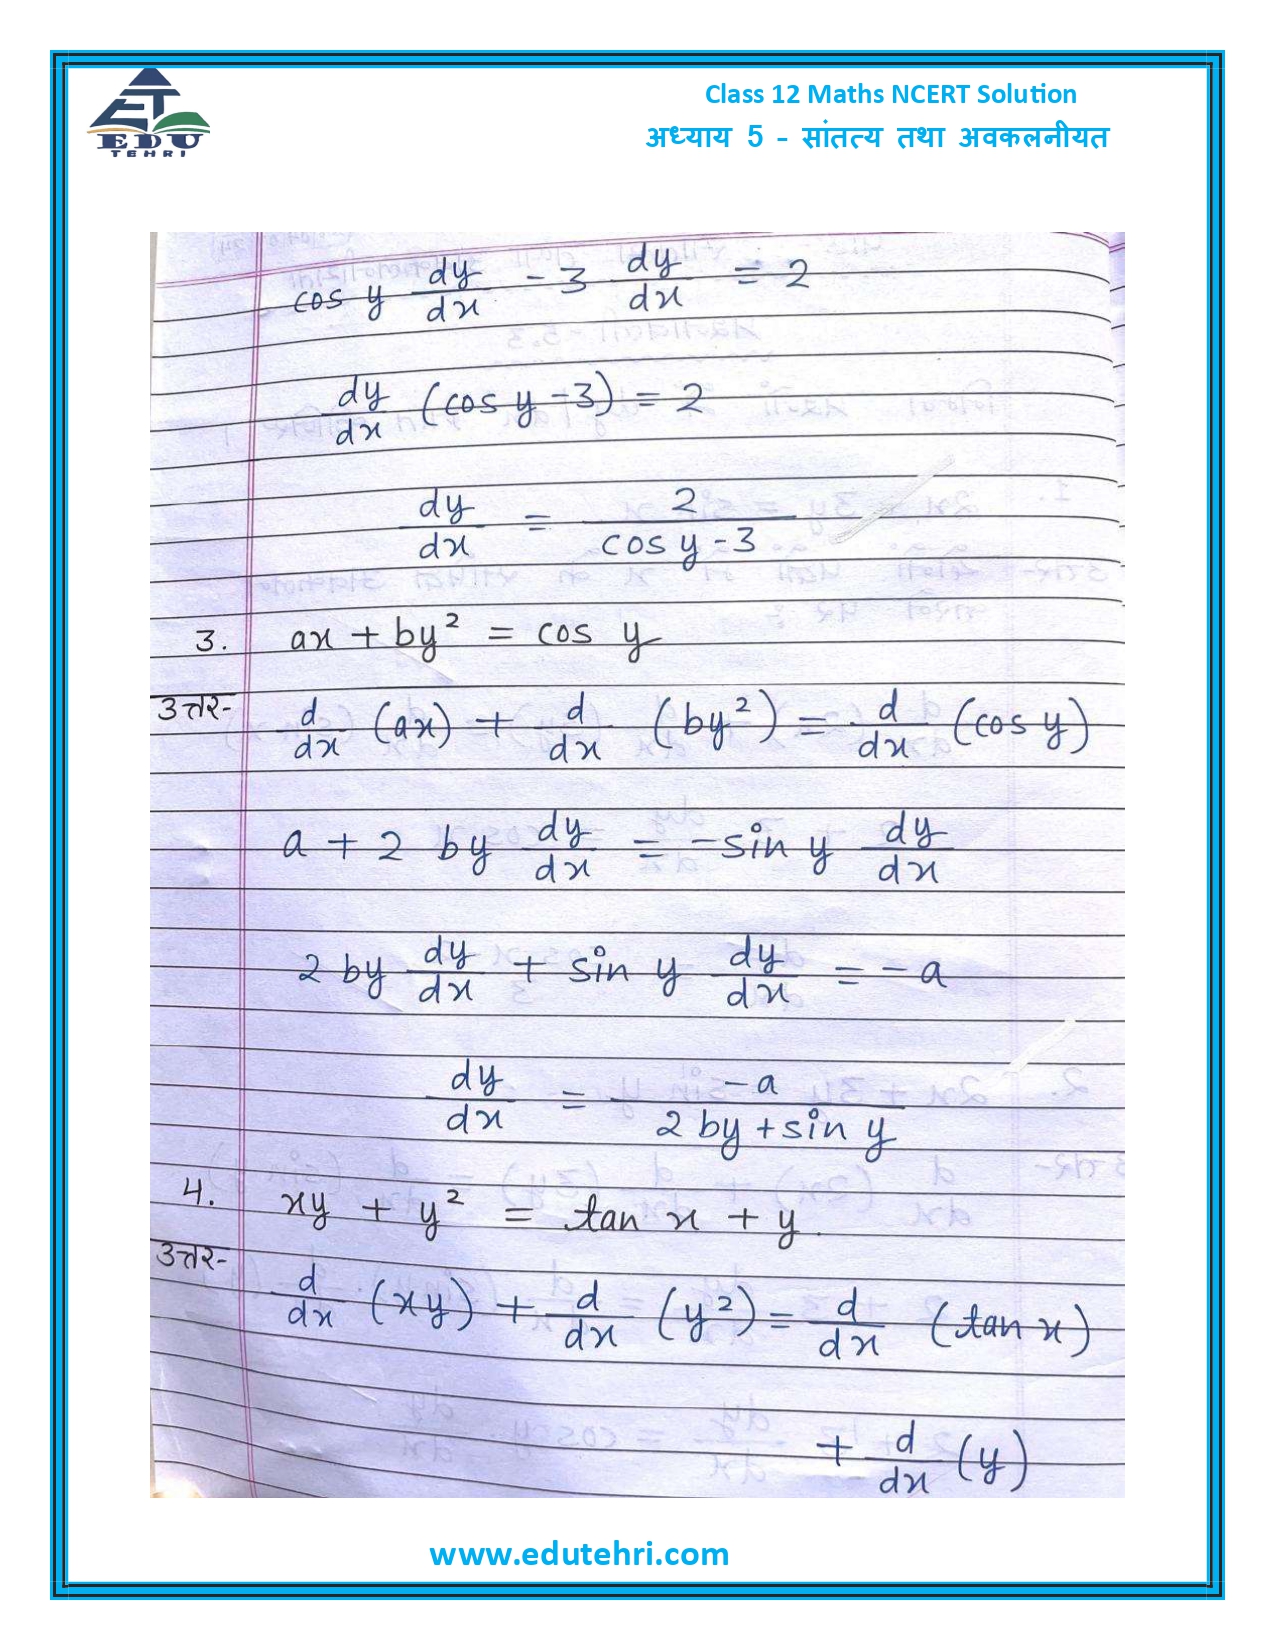 EDU
TEHRI
Class 12 Maths NCERT Solution
अध्याय 5 - सांतत्य तथा अवकलनीयत
cos y dy/dx - 3 dy/dx = 2
dy/dx (cos y - 3) = 2
dy/dx = 2/(cos y - 3)
3. ax + by² = cos y
उत्तर- d/dx (ax) + d/dx (by²) = d/dx (cos y)
a + 2 by dy/dx = - sin y dy/dx
2 by dy/dx + sin y dy/dx = - a
dy/dx = -a/(2 by + sin y)
4. xy + y² = tan x + y.
उत्तर- d/dx (xy) + d/dx (y²) = d/dx (tan x)
+ d/dx (y)
www.edutehri.com